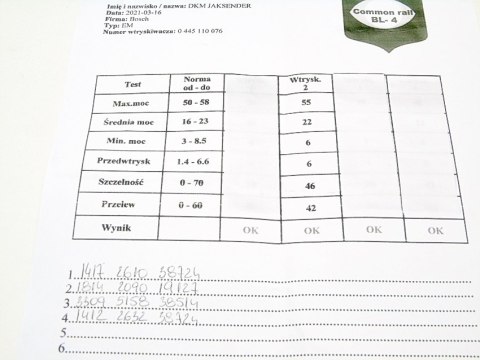 Imię i nazwisko / nazwa: DKM JAKSENDER
Data: 2021-03-16
Firma: Bosch
Typ: EM
Numer wtryskiwacza: 0 445 110 076
Common rail
BL- 4
Test Norma od - do Wtrysk. 2
Max.moc 50 - 58 55
Średnia moc 16 - 23 22
Min. moc 3 - 8.5 6
Przedwtrysk 1.4 - 6.6 6
Szczelność 0 - 70 46
Przelew 0 - 60 42
Wynik OK OK OK OK
1. 1417 2610 38724
2. 1814 2090 19127
3. 3309 5158 38514
4. 1412 2632 38724
5.
6.